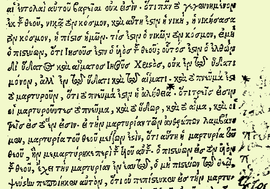 αἱ ἐντολαὶ αὐτοῦ βαρεῖαι οὐκ εἰσίν. ὅτι πᾶν τὸ γεγεννημένον
θεοῦ, νικᾷ τὸν κόσμον, καὶ αὕτη ἐστὶν ἡ νίκη, ἡ νικήσασα
τὸν κόσμον, ἡ πίστις ἡμῶν. τίς ἐστιν ὁ νικῶν τὸν κόσμον, εἰ μὴ
ὁ πιστεύων, ὅτι Ἰησοῦς ἐστιν ὁ υἱὸς τοῦ θεοῦ; οὗτός ἐστιν ὁ ἐλθὼν
δι' ὕδατος καὶ αἵματος Ἰησοῦς Χριστός, οὐκ ἐν τῷ ὕδατι
μόνον, ἀλλ' ἐν τῷ ὕδατι καὶ τῷ αἵματι. καὶ τὸ πνεῦμά ἐστι
τὸ μαρτυροῦν, ὅτι τὸ πνεῦμά ἐστιν ἡ ἀλήθεια. ὅτι τρεῖς εἰσιν
οἱ μαρτυροῦντες τὸ πνεῦμα, καὶ τὸ ὕδωρ, καὶ τὸ αἷμα, καὶ οἱ
τρεῖς εἰς τὸ ἕν εἰσιν. εἰ τὴν μαρτυρίαν τῶν ἀνθρώπων λαμβάνο
μεν, μαρτυρία τοῦ θεοῦ μείζων ἐστίν, ὅτι αὕτη ἐστὶν ἡ μαρτυρία τοῦ
θεοῦ, ἣν μεμαρτύρηκε περὶ τοῦ υἱοῦ αὐτοῦ. ὁ πιστεύων εἰς τὸν υἱὸν τοῦ
θεοῦ, ἔχει τὴν μαρτυρίαν ἐν ἑαυτῷ, ὁ μὴ πιστεύων τῷ θεῷ,
ψεύστην πεποίηκεν αὐτόν, ὅτι οὐ πεπίστευκεν εἰς τὴν μαρτυ